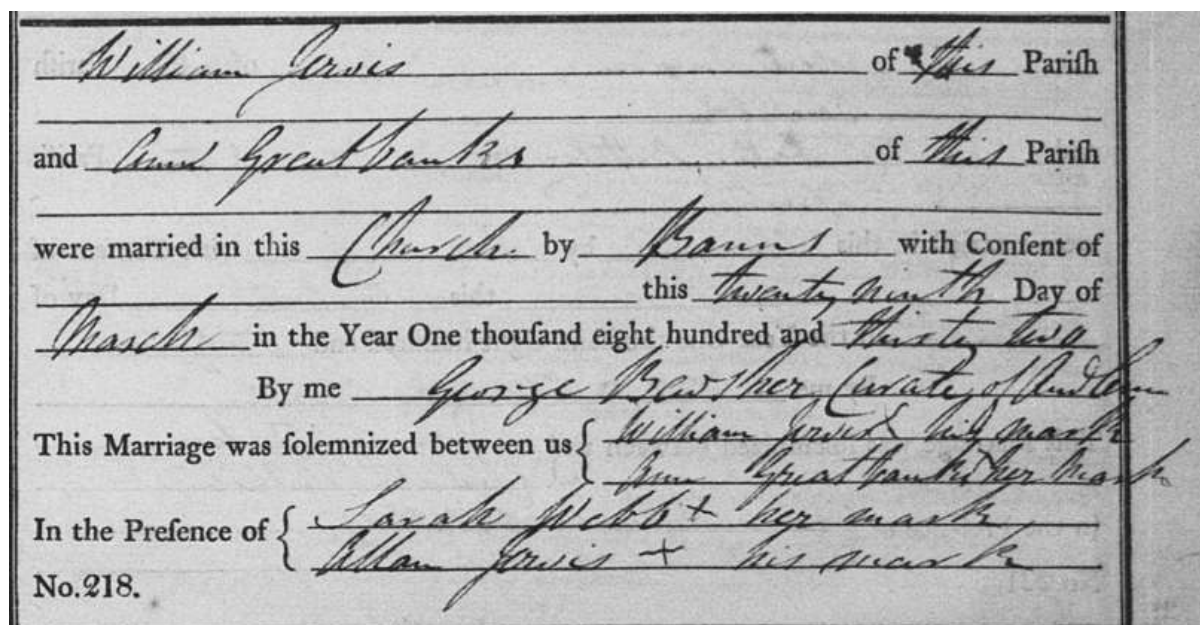 William Jervis of this Pariſh
and Ann Greatbanks of this Pariſh
were married in this Church by Banns with Conſent of
this twenty ninth Day of
March in the Year One thouſand eight hundred and thirty two
By me George Bewsher Curate of Audlem
This Marriage was ſolemnized between us { William Jervis X his mark
Ann Greatbanks X her mark
In the Preſence of { Sarah Webb + her mark
Allan Jervis + his mark
No.218.